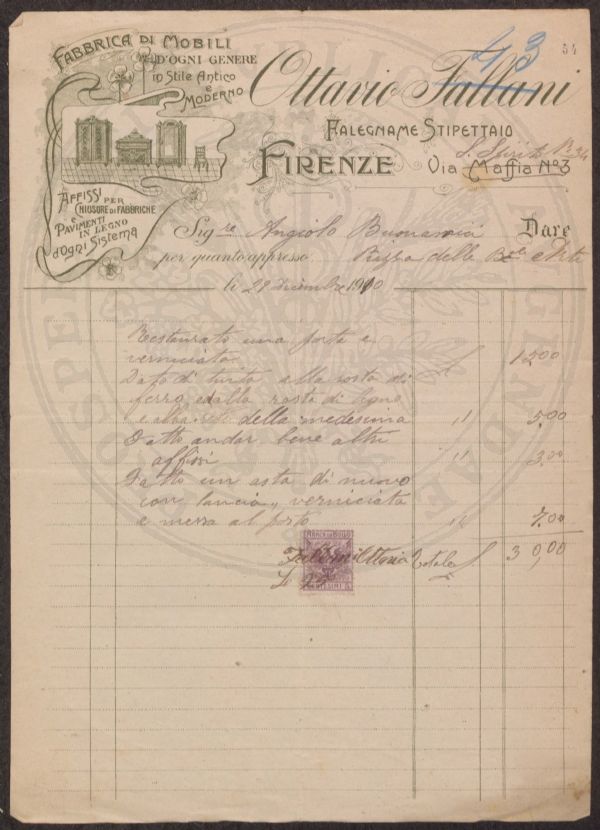 FABBRICA DI MOBILI
D'OGNI GENERE
in Stile Antico
e
MODERNO
413
54
Ottavio Fallani
FALEGNAME STIPETTAIO
S. Spirito
FIRENZE Via Maffia No. 3
AFFISSI PER
CHIUSURE DI FABBRICHE
e
PAVIMENTI
IN LEGNO
d'Ogni Sistema
Sig.re Angiolo Dare
per quanto appresso delle Arti
li 29 Dicembre 1910
Restaurato una porta e
verniciata 15,00
Dato di tinta alla rosta di
ferro e alla rosta di legno
e alla della medesima 5,00
Fatto andar bene altri
affissi 3,00
Fatto un asta di nuovo
con lancia verniciata
e messa al posto 7,00
MARCA DA BOLLO
Fallani Ottavio Totale 30,00
CENTESIMI 5